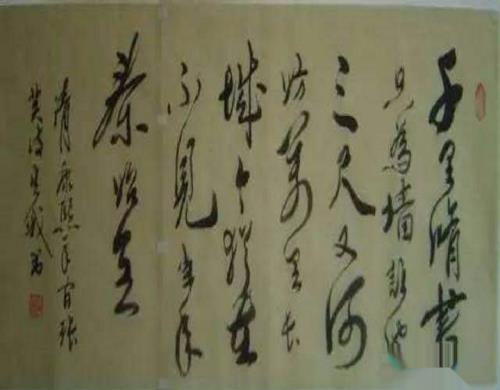 千里脩書
只為墻讓他
三尺又何
妨萬里長
城今猶在
不見当年
秦始皇
清康熙年官張
英詩